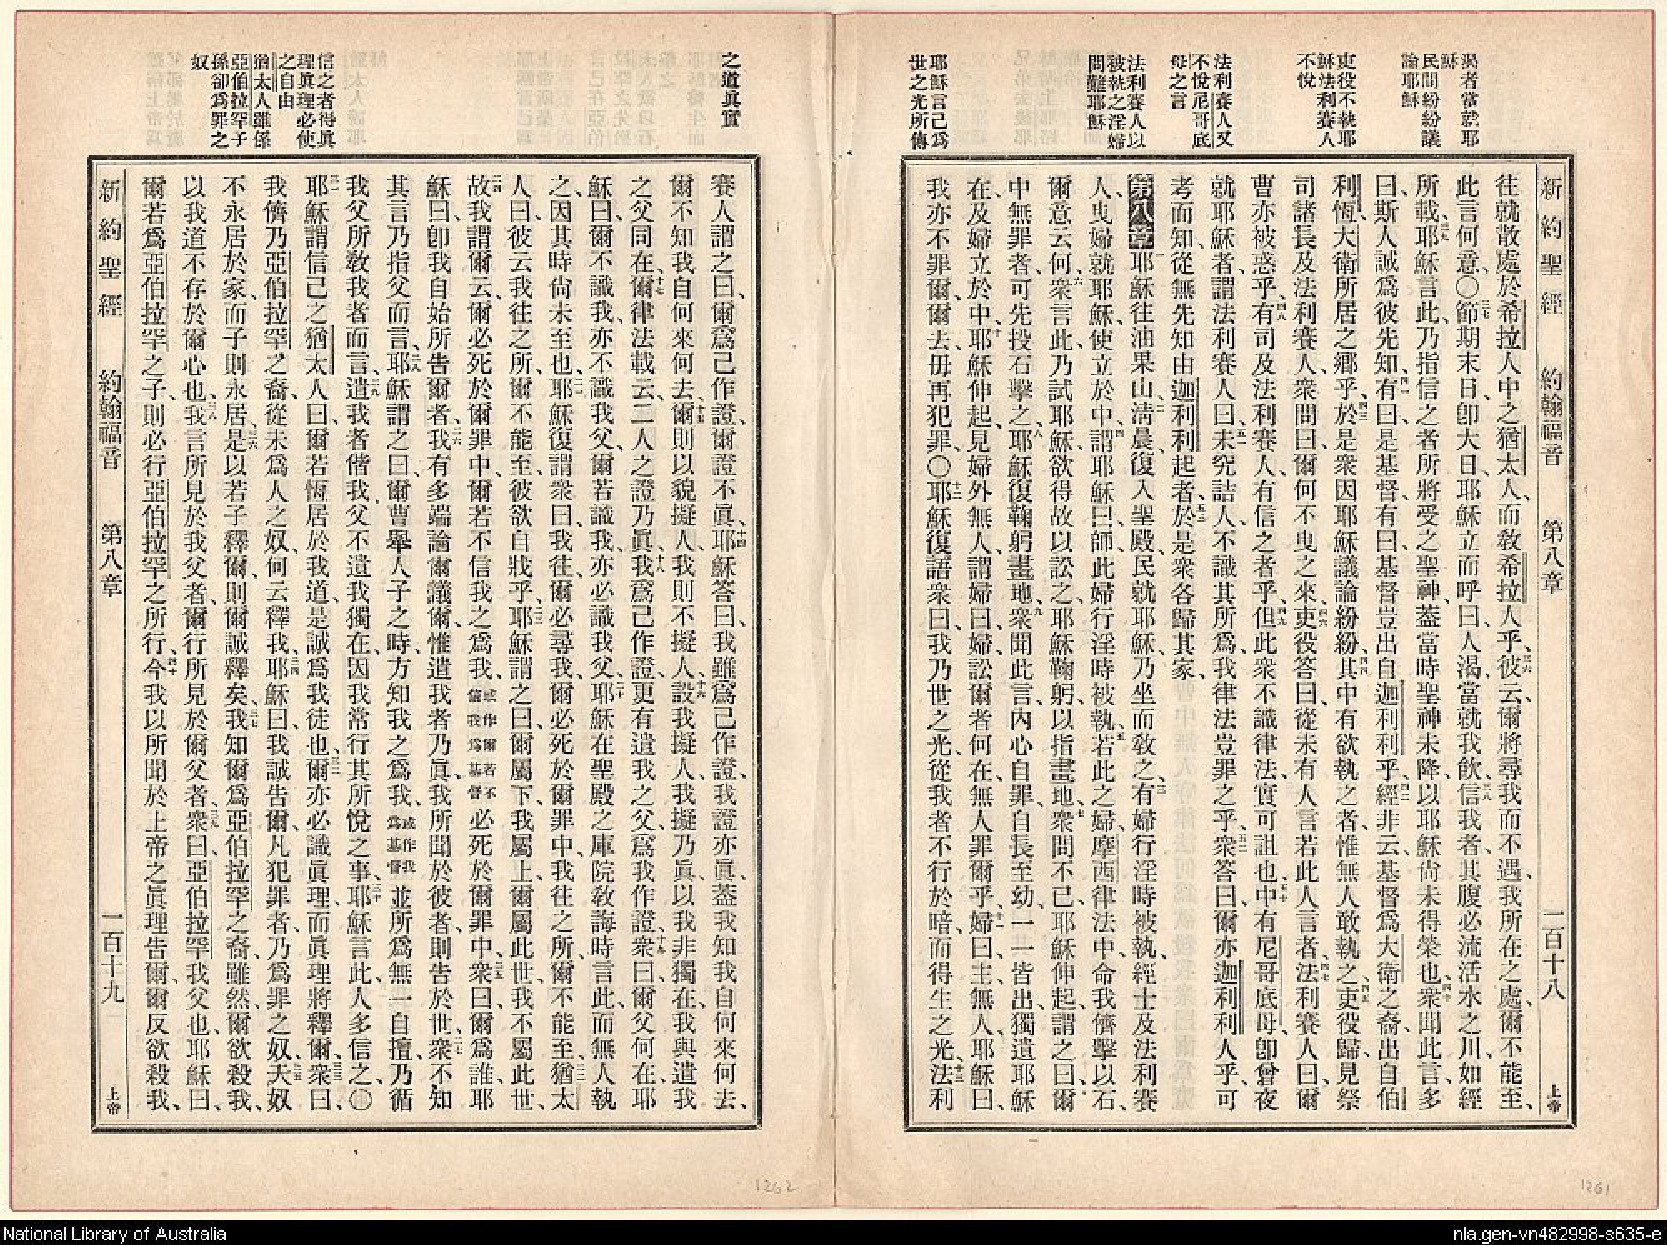 新約聖經 約翰福音 第八章 二百十八 上帝
渴者當就耶
穌
民間紛紛議
論耶穌
吏役不執耶
穌法利賽人
不悅
法利賽人又
不悅尼哥底
母之言
法利賽人以
被執之淫婦
問難耶穌
耶穌言己爲
世之光所傳
往就散處於希拉人中之猶太人、而敎希拉人乎、三六彼云、爾將尋我而不遇、我所在之處、爾不能至、
此言何意、〇三七節期末日、卽大日、耶穌立而呼曰、人渴、當就我飮、三八信我者、其腹必流活水之川、如經
所載、三九耶穌言此、乃指信之者所將受之聖神、蓋當時聖神未降、以耶穌尙未得榮也、四十衆聞此言、多
曰、斯人誠爲彼先知、四一有曰、是基督、有曰、基督豈出自迦利利乎、四二經非云基督爲大衛之裔、出自伯
利恆、大衛所居之鄉乎、四三於是衆因耶穌議論紛紛、四四其中有欲執之者、惟無人敢執之、四五吏役歸、見祭
司諸長及法利賽人、衆問曰、爾何不曳之來、四六吏役答曰、從未有人言若此人言者、四七法利賽人曰、爾
曹亦被惑乎、四八有司及法利賽人、有信之者乎、四九但此衆不識律法、實可詛也、五十中有尼哥底母、卽曾夜
就耶穌者、謂法利賽人曰、五一未究詰人、不識其所爲、我律法豈罪之乎、五二衆答曰、爾亦迦利利人乎、可
考而知、從無先知由迦利利起者、五三於是衆各歸其家、
第八章 一耶穌往油果山、二淸晨、復入聖殿、民就耶穌、乃坐而敎之、三有婦行淫時被執、經士及法利賽
人、曳婦就耶穌、使立於中、四謂耶穌曰、師、此婦行淫時被執、五若此之婦、摩西律法中、命我儕擊以石、
爾意云何、六衆言此、乃試耶穌、欲得故以訟之、耶穌鞠躬、以指畫地、七衆問不已、耶穌伸起、謂之曰、爾
中無罪者、可先投石擊之、八耶穌復鞠躬畫地、九衆聞此言、內心自罪、自長至幼、一一皆出、獨遺耶穌
在、及婦立於中、十耶穌伸起、見婦外無人、謂婦曰、婦、訟爾者何在、無人罪爾乎、十一婦曰、主、無人、耶穌曰、
我亦不罪爾、爾去、毋再犯罪、〇十二耶穌復語衆曰、我乃世之光、從我者不行於暗、而得生之光、十三法利
之道眞實
信之者得眞
理眞理必使
之自由
猶太人雖係
亞伯拉罕子
孫卻爲罪之
奴
賽人謂之曰、爾爲己作證、爾證不眞、十四耶穌答曰、我雖爲己作證、我證亦眞、蓋我知我自何來何去、
爾不知我自何來何去、十五爾則以貌擬人、我則不擬人、十六設我擬人、我擬乃眞、以我非獨在、我與遣我
之父同在、十七爾律法載云、二人之證乃眞、十八我爲己作證、更有遣我之父爲我作證、十九衆曰、爾父何在、耶
穌曰、爾不識我、亦不識我父、爾若識我、亦必識我父、二十耶穌在聖殿之庫院敎誨時言此、而無人執
之、因其時尙未至也、二一耶穌復謂衆曰、我往、爾必尋我、爾必死於爾罪中、我往之所、爾不能至、二二猶太
人曰、彼云我往之所、爾不能至、彼欲自戕乎、二三耶穌謂之曰、爾屬下、我屬上、爾屬此世、我不屬此世、
二四故我謂爾云、爾必死於爾罪中、爾若不信我之爲我、或作爾若不信我爲基督必死於爾罪中、二五衆曰、爾爲誰、耶
穌曰、卽我自始所告爾者、二六我有多端論爾議爾、惟遣我者乃眞、我所聞於彼者、則告於世、二七衆不知
其言乃指父而言、二八耶穌謂之曰、爾曹舉人子之時、方知我之爲我、或作我爲基督並所爲無一自擅、乃循
我父所敎我者而言、二九遣我者偕我、父不遺我獨在、因我常行其所悅之事、三十耶穌言此、人多信之、〇
三一耶穌謂信己之猶太人曰、爾若恆居於我道、是誠爲我徒也、三二爾亦必識眞理、而眞理將釋爾、三三衆曰、
我儕乃亞伯拉罕之裔、從未爲人之奴、何云釋我、三四耶穌曰、我誠告爾、凡犯罪者、乃爲罪之奴、三五夫奴
不永居於家、而子則永居、三六是以若子釋爾、則爾誠釋矣、三七我知爾爲亞伯拉罕之裔、雖然、爾欲殺我、
以我道不存於爾心也、三八我言所見於我父者、爾行所見於爾父者、三九衆曰、亞伯拉罕我父也、耶穌曰、
爾若爲亞伯拉罕之子、則必行亞伯拉罕之所行、四十今我以所聞於上帝之眞理告爾、爾反欲殺我、
新約聖經 約翰福音 第八章 二百十九 上帝
1262
1261
National Library of Australia
nla.gen-vn482998-s635-e